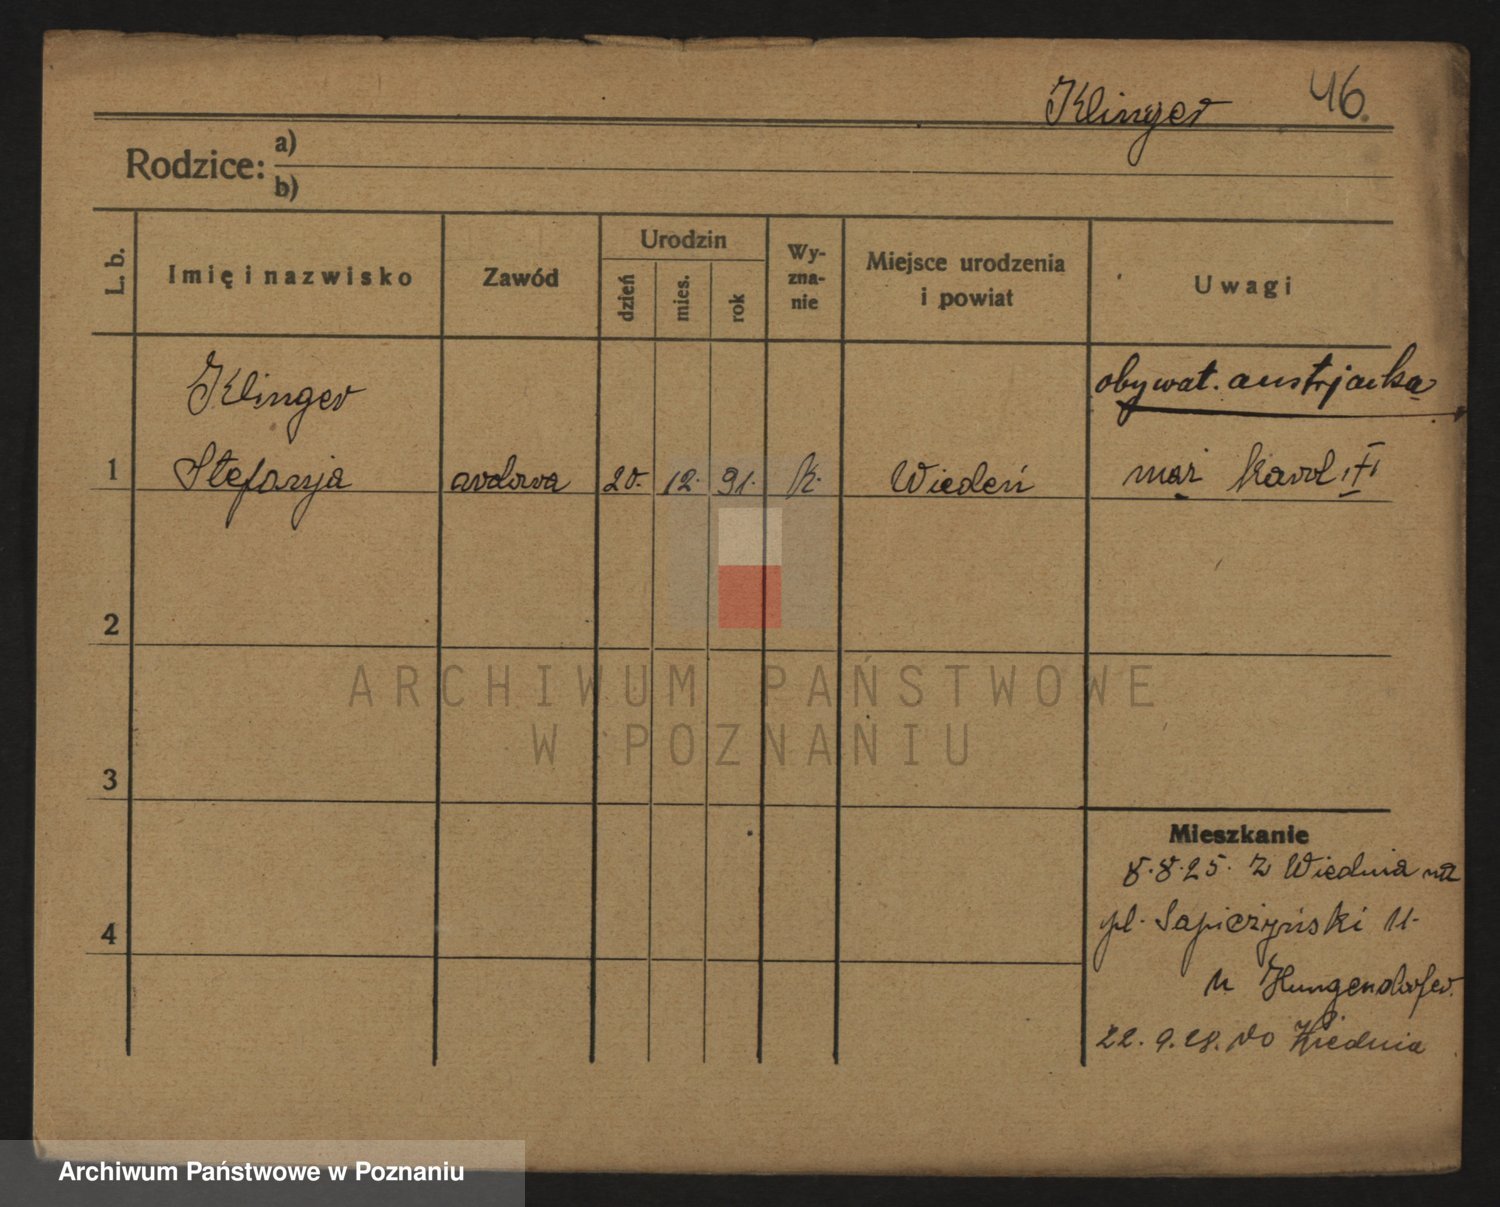 Klinger 46.
Rodzice: a)
b)
L. b.
Imię i nazwisko
Zawód
Urodzin
dzień
mies.
rok
Wy-
zna-
nie
Miejsce urodzenia
i powiat
Uwagi
Klinger
obywat. austrjacka
1 Stefanja wdowa 20. 12. 91. k. Wiedeń mąż Karol
2
ARCHIWUM PAŃSTWOWE
W POZNANIU
3
Mieszkanie
8.8.25. z Wiednia na
pl. Sapieżyński 11.
4
u Hungendorfer.
22. 9. 28. do Wiednia
Archiwum Państwowe w Poznaniu